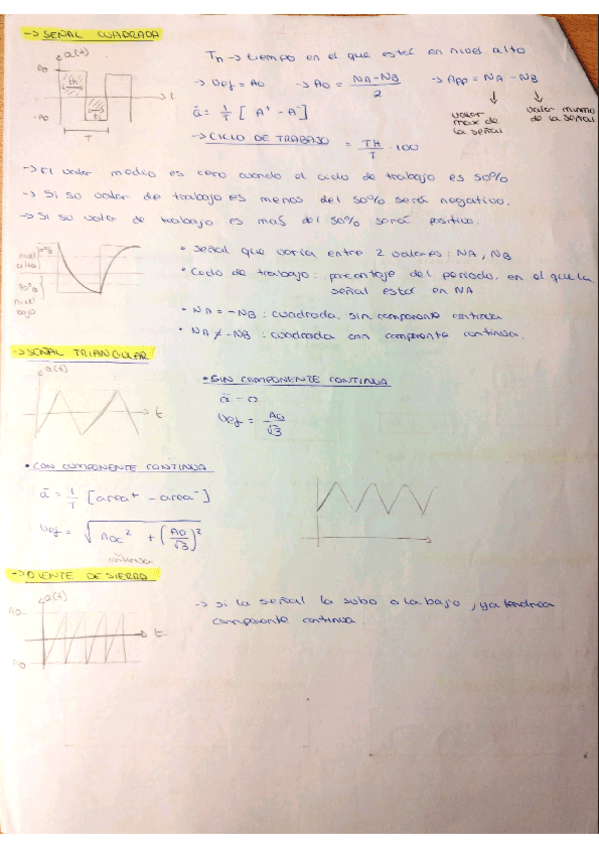 → SEÑAL CUADRADA
a(t)
A0
-A0
t
T
Tn → tiempo en el que está en nivel alto
→ Vef = A0 → A0 = NA-NB / 2 → APP = NA - NB
valor max de la señal
valor mínimo de la señal
ā = 1/T [ A⁺ - A⁻ ]
→ CICLO DE TRABAJO = TH/T · 100
→ El valor medio es cero cuando el ciclo de trabajo es 50%
→ Si su valor de trabajo es menos del 50% será negativo.
→ Si su valor de trabajo es mas del 50% será positivo.
nivel alto
90%
nivel bajo
• Señal que varía entre 2 valores: NA, NB
• Ciclo de trabajo: porcentaje del periodo, en el que la
señal está en NA
• NA = -NB : cuadrada, sin componente continua
• NA ≠ -NB : cuadrada con componente continua.
→ SEÑAL TRIANGULAR
a(t)
t
• SIN COMPONENTE CONTINUA
ā = 0
Vef = A0/√3
• CON COMPONENTE CONTINUA
ā = 1/T [area⁺ - area⁻]
Vef = √(ADC² + (A0/√3)²)
continua
→ DIENTE DE SIERRA
a(t)
A0
A0
t
→ si la señal la subo o la bajo, ya tendría
componente continua.